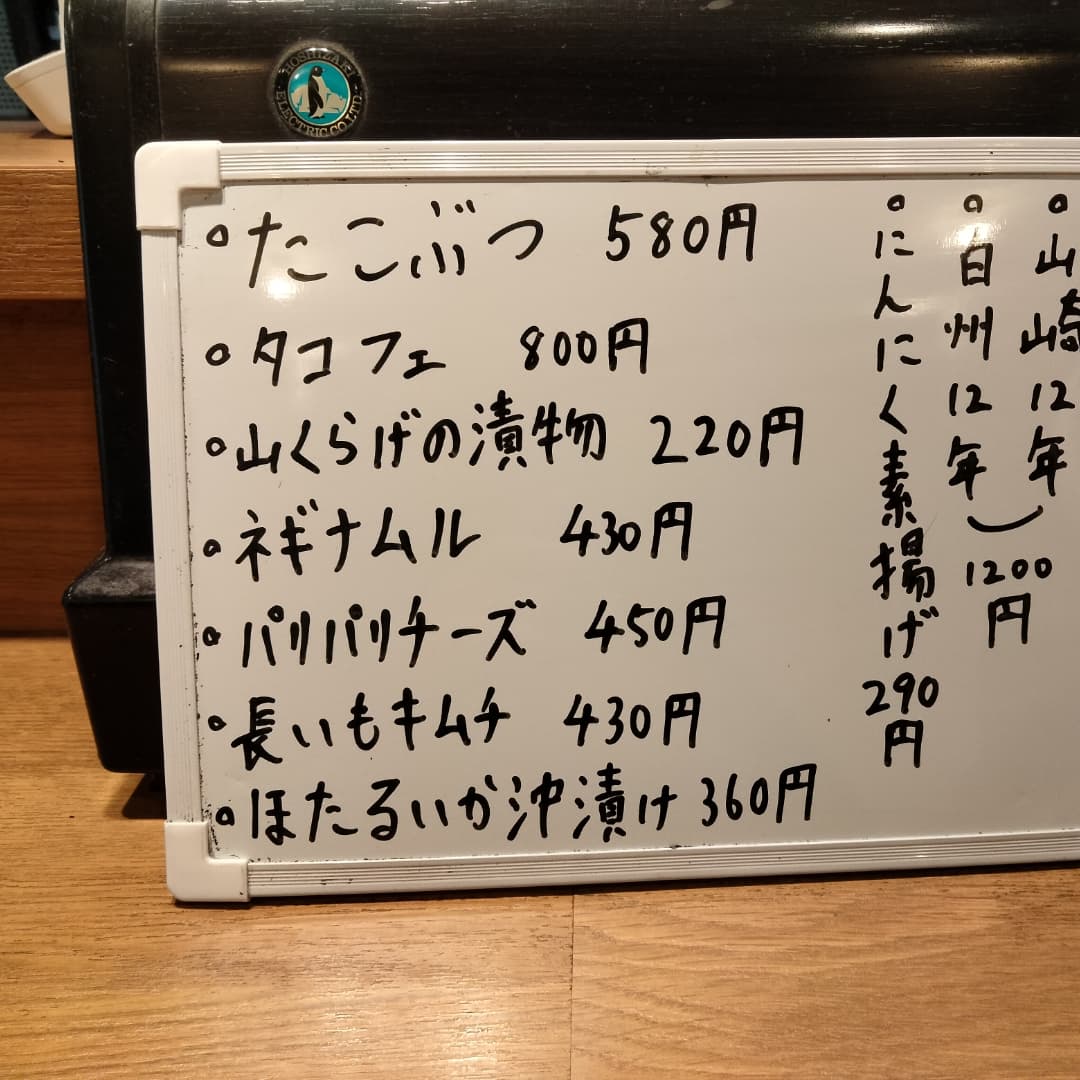 HOSHIZAKI ELECTRIC CO.,LTD.
。たこぶつ 580円
。タコフェ 800円
。山くらげの漬物 220円
。ネギナムル 430円
。パリパリチーズ 450円
。長いもキムチ 430円
。ほたるいか沖漬け 360円
。山崎12年
。白州12年
1200円
。にんにく素揚げ 290円